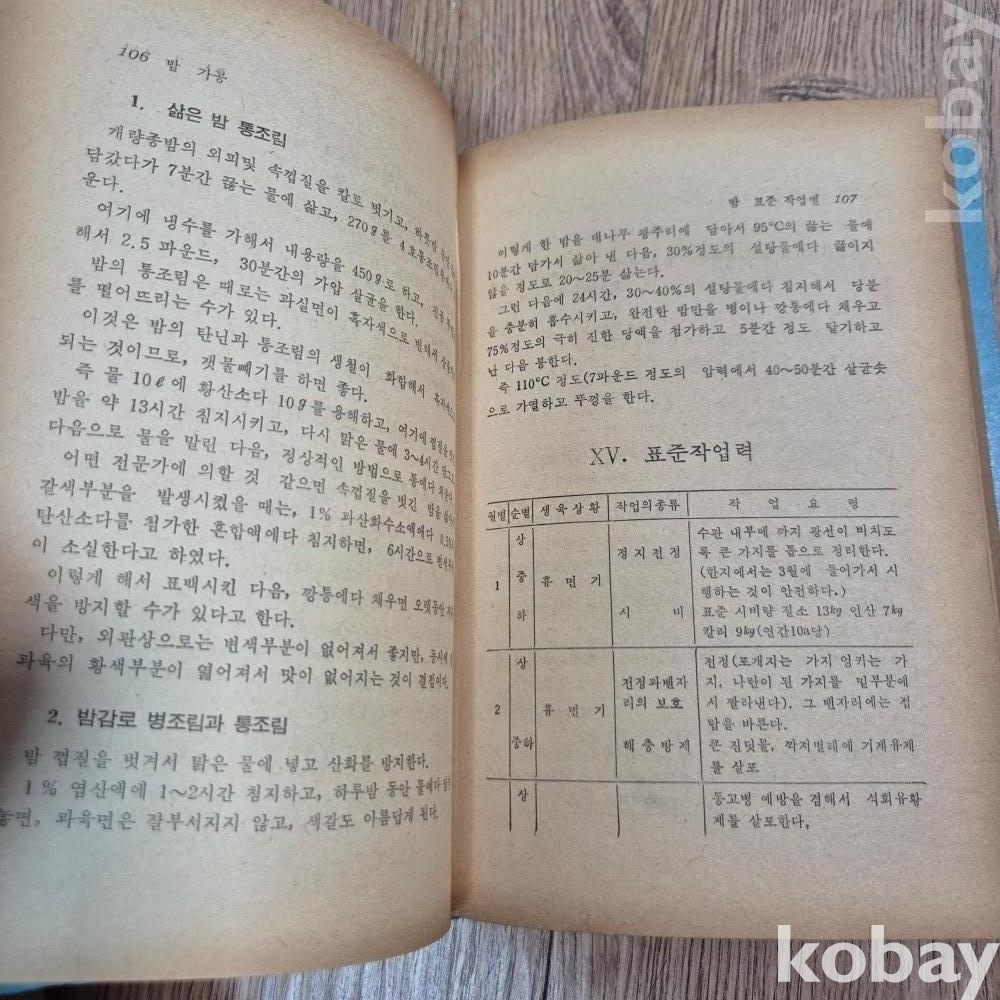 106 밤 가공
1. 삶은 밤 통조림
개량종밤의 외피및 속껍질을 칼로 벗기고, 하룻밤
담갔다가 7분간 끓는 물에 삶고, 270g를 4호통조림통에
운다.
여기에 냉수를 가해서 내용량을 450g로 하고,
해서 2.5 파운드, 30분간의 가압 살균을 한다.
밤의 통조림은 때로는 과실면이 흑자색으로 변해서
를 떨어뜨리는 수가 있다.
이것은 밤의 탄닌과 통조림의 생철이 화합해서
되는 것이므로, 갯물빼기를 하면 좋다.
즉 물 10ℓ에 황산소다 10g를 용해하고, 여기에 껍질을
밤을 약 13시간 침지시키고, 다시 맑은 물에 3~4시간 담그고
다음으로 물을 말린 다음, 정상적인 방법으로 통에다
어떤 전문가에 의할 것 같으면 속껍질을 벗긴 밤을
갈색부분을 발생시켰을 때는, 1% 과산화수소액에다
탄산소다를 첨가한 혼합액에다 침지하면, 6시간으로
이 소실한다고 하였다.
이렇게 해서 표백시킨 다음, 깡통에다 채우면 오랫동안
색을 방지할 수가 있다고 한다.
다만, 외관상으로는 변색부분이 없어져서 좋지만, 동시에
과육의 황색부분이 엷어져서 맛이 없어지는 것이 결점이다.
2. 밤감로 병조림과 통조림
밤 껍질을 벗겨서 맑은 물에 넣고 산화를 방지한다.
1% 염산액에 1~2시간 침지하고, 하루밤 동안 물에다
놓면, 과육면은 잘부서지지 않고, 색갈도 아름답게 된다.
밤 표준 작업별 107
이렇게 한 밤을 대나무 광주리에 담아서 95°C의 끓는 물에
10분간 담가서 삶아 낸 다음, 30%정도의 설탕물에다 끓이지
않을 정도로 20~25분 삶는다.
그런 다음에 24시간, 30~40%의 설탕물에다 침지해서 당분
을 충분히 흡수시키고, 완전한 밤만을 병이나 깡통에다 채우고
75%정도의 극히 진한 당액을 첨가하고 5분간 정도 탈기하고
난 다음 봉한다.
즉 110°C 정도(7파운드 정도의 압력에서 40~50분간 살균솟
으로 가열하고 뚜껑을 한다.
XV. 표준작업력
월별 순별 생육상황 작업의종류 작업요령
상 정지전정 수관 내부에 까지 광선이 비치도
록 큰 가지를 톱으로 정리한다.
1 중 휴면기 (한지에서는 3월에 들어가서 시
행하는 것이 안전하다.)
하 시비 표준 시비량 질소 13kg 인산 7kg
칼리 9kg(연간10a당)
상 전정(포개지는 가지 엉키는 가
전정과벤자 지, 나란이 된 가지를 밑부분에
2 휴면기 리의 보호 서 짤라낸다). 그 벤자리에는 접
랍을 바른다.
중하 해충방제 큰 진딧물, 깍지벌레에 기계유제
를 살포
상 동고병 예방을 겸해서 석회유황
제를 살포한다.
kobay
kobay